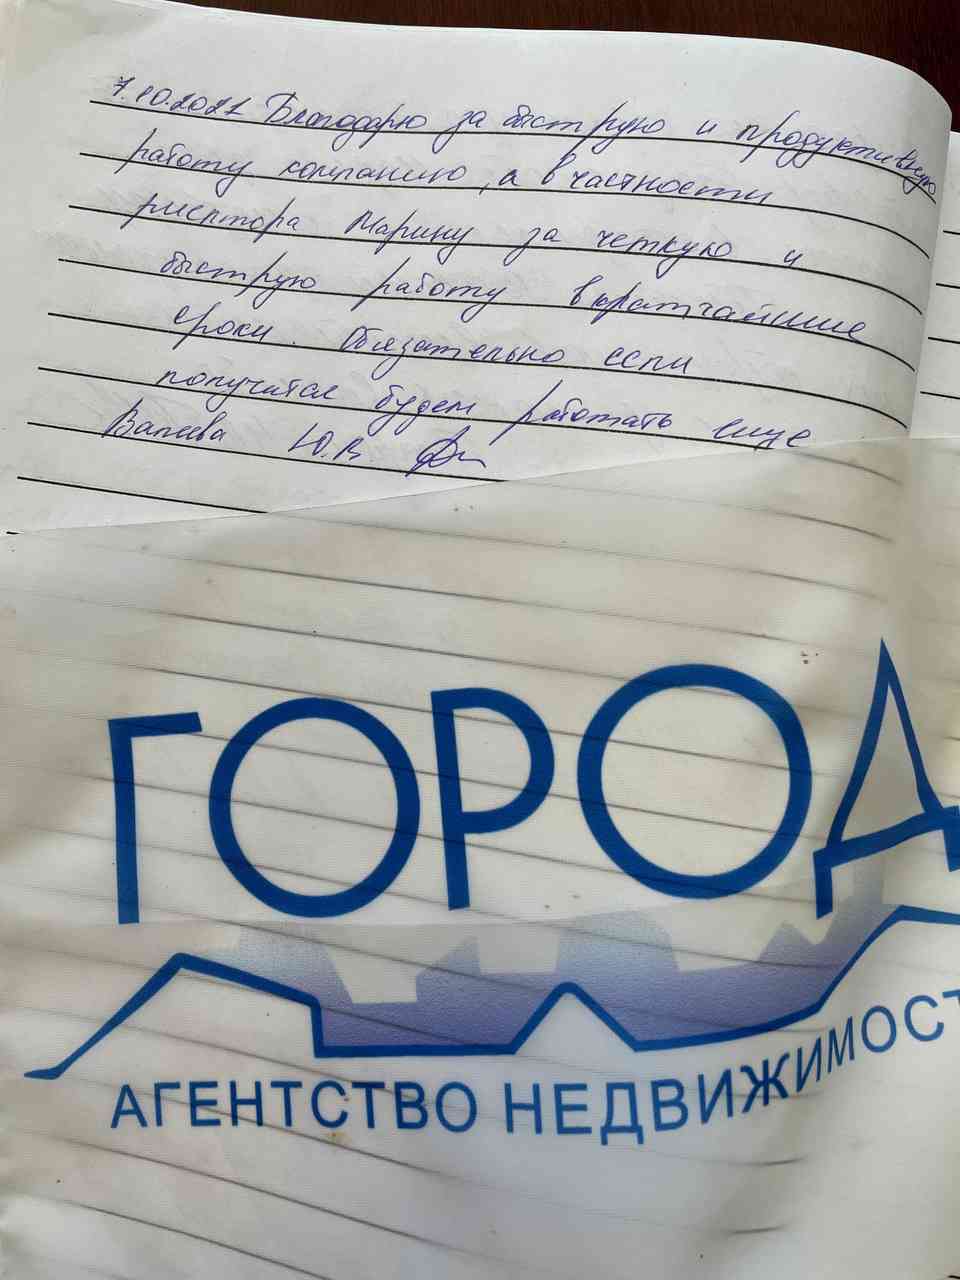 7.10.2021 Благодарю за быструю и продуктивную
работу компанию, а в частности
риелтора Марину за четкую и
быструю работу в кратчайшие
сроки. Обязательно если
получится будем работать еще
Валеева Ю.В.
ГОРОД
АГЕНТСТВО НЕДВИЖИМОСТ